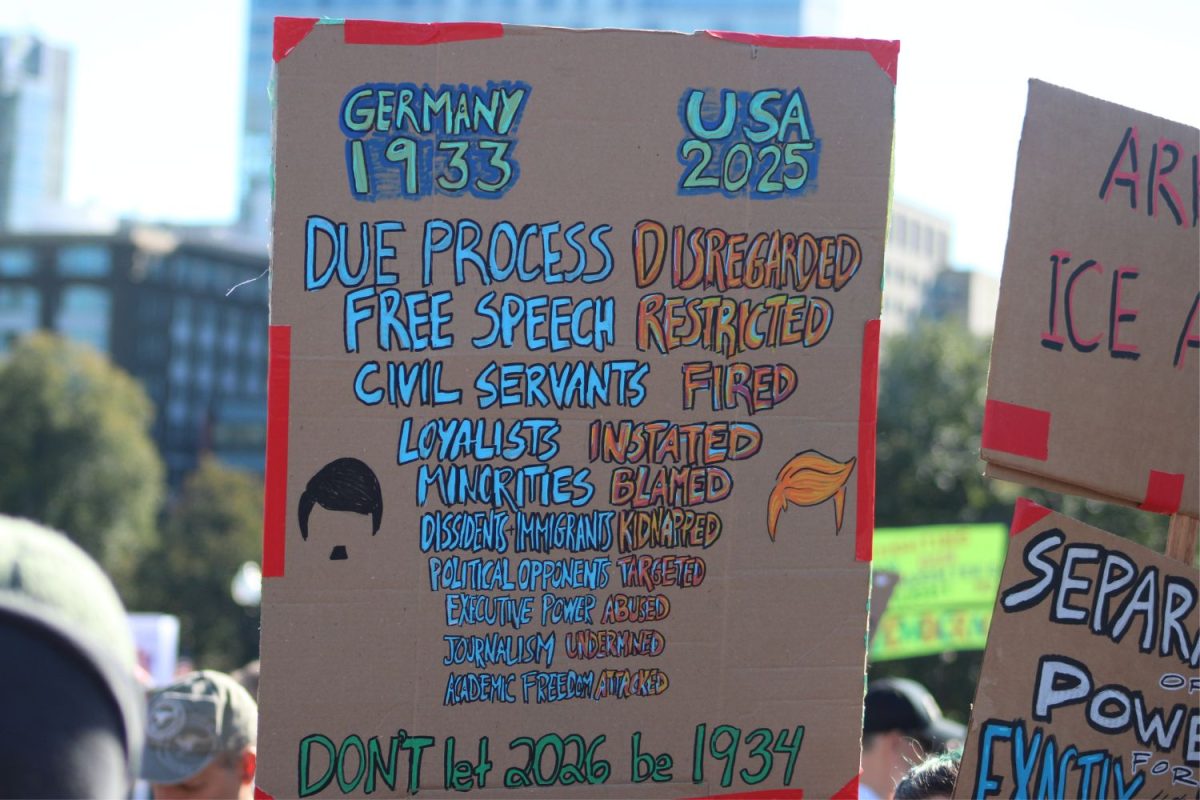 GERMANY USA
1933 2025
DUE PROCESS DISREGARDED
FREE SPEECH RESTRICTED
CIVIL SERVANTS FIRED
LOYALISTS INSTATED
MINORITIES BLAMED
DISSIDENTS·IMMIGRANTS KIDNAPPED
POLITICAL OPPONENTS TARGETED
EXECUTIVE POWER ABUSED
JOURNALISM UNDERMINED
ACADEMIC FREEDOM ATTACKED
DON'T let 2026 be 1934
ICE
SEPARA
OF
POWE
FOR
EXACTLY